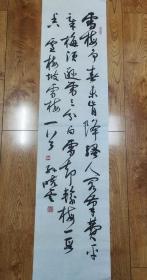 雪梅争春未肯降骚人阁笔费平
章梅须逊雪三分白雪却输梅一段
香 卢梅坡雪梅一首 孙晓云